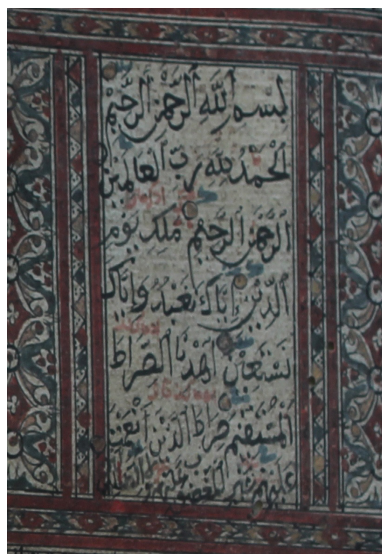 بِسْمِ ٱللَّهِ ٱلرَّحْمَٰنِ ٱلرَّحِيمِ
ٱلْحَمْدُ لِلَّهِ رَبِّ ٱلْعَالَمِينَ
ٱلرَّحْمَٰنِ ٱلرَّحِيمِ مَلِكِ يَوْمِ
ٱلدِّينِ إِيَّاكَ نَعْبُدُ وَإِيَّاكَ
نَسْتَعِينُ ٱهْدِنَا ٱلصِّرَاطَ
ٱلْمُسْتَقِيمَ صِرَاطَ ٱلَّذِينَ أَنْعَمْتَ
عَلَيْهِمْ غَيْرِ ٱلْمَغْضُوبِ عَلَيْهِمْ